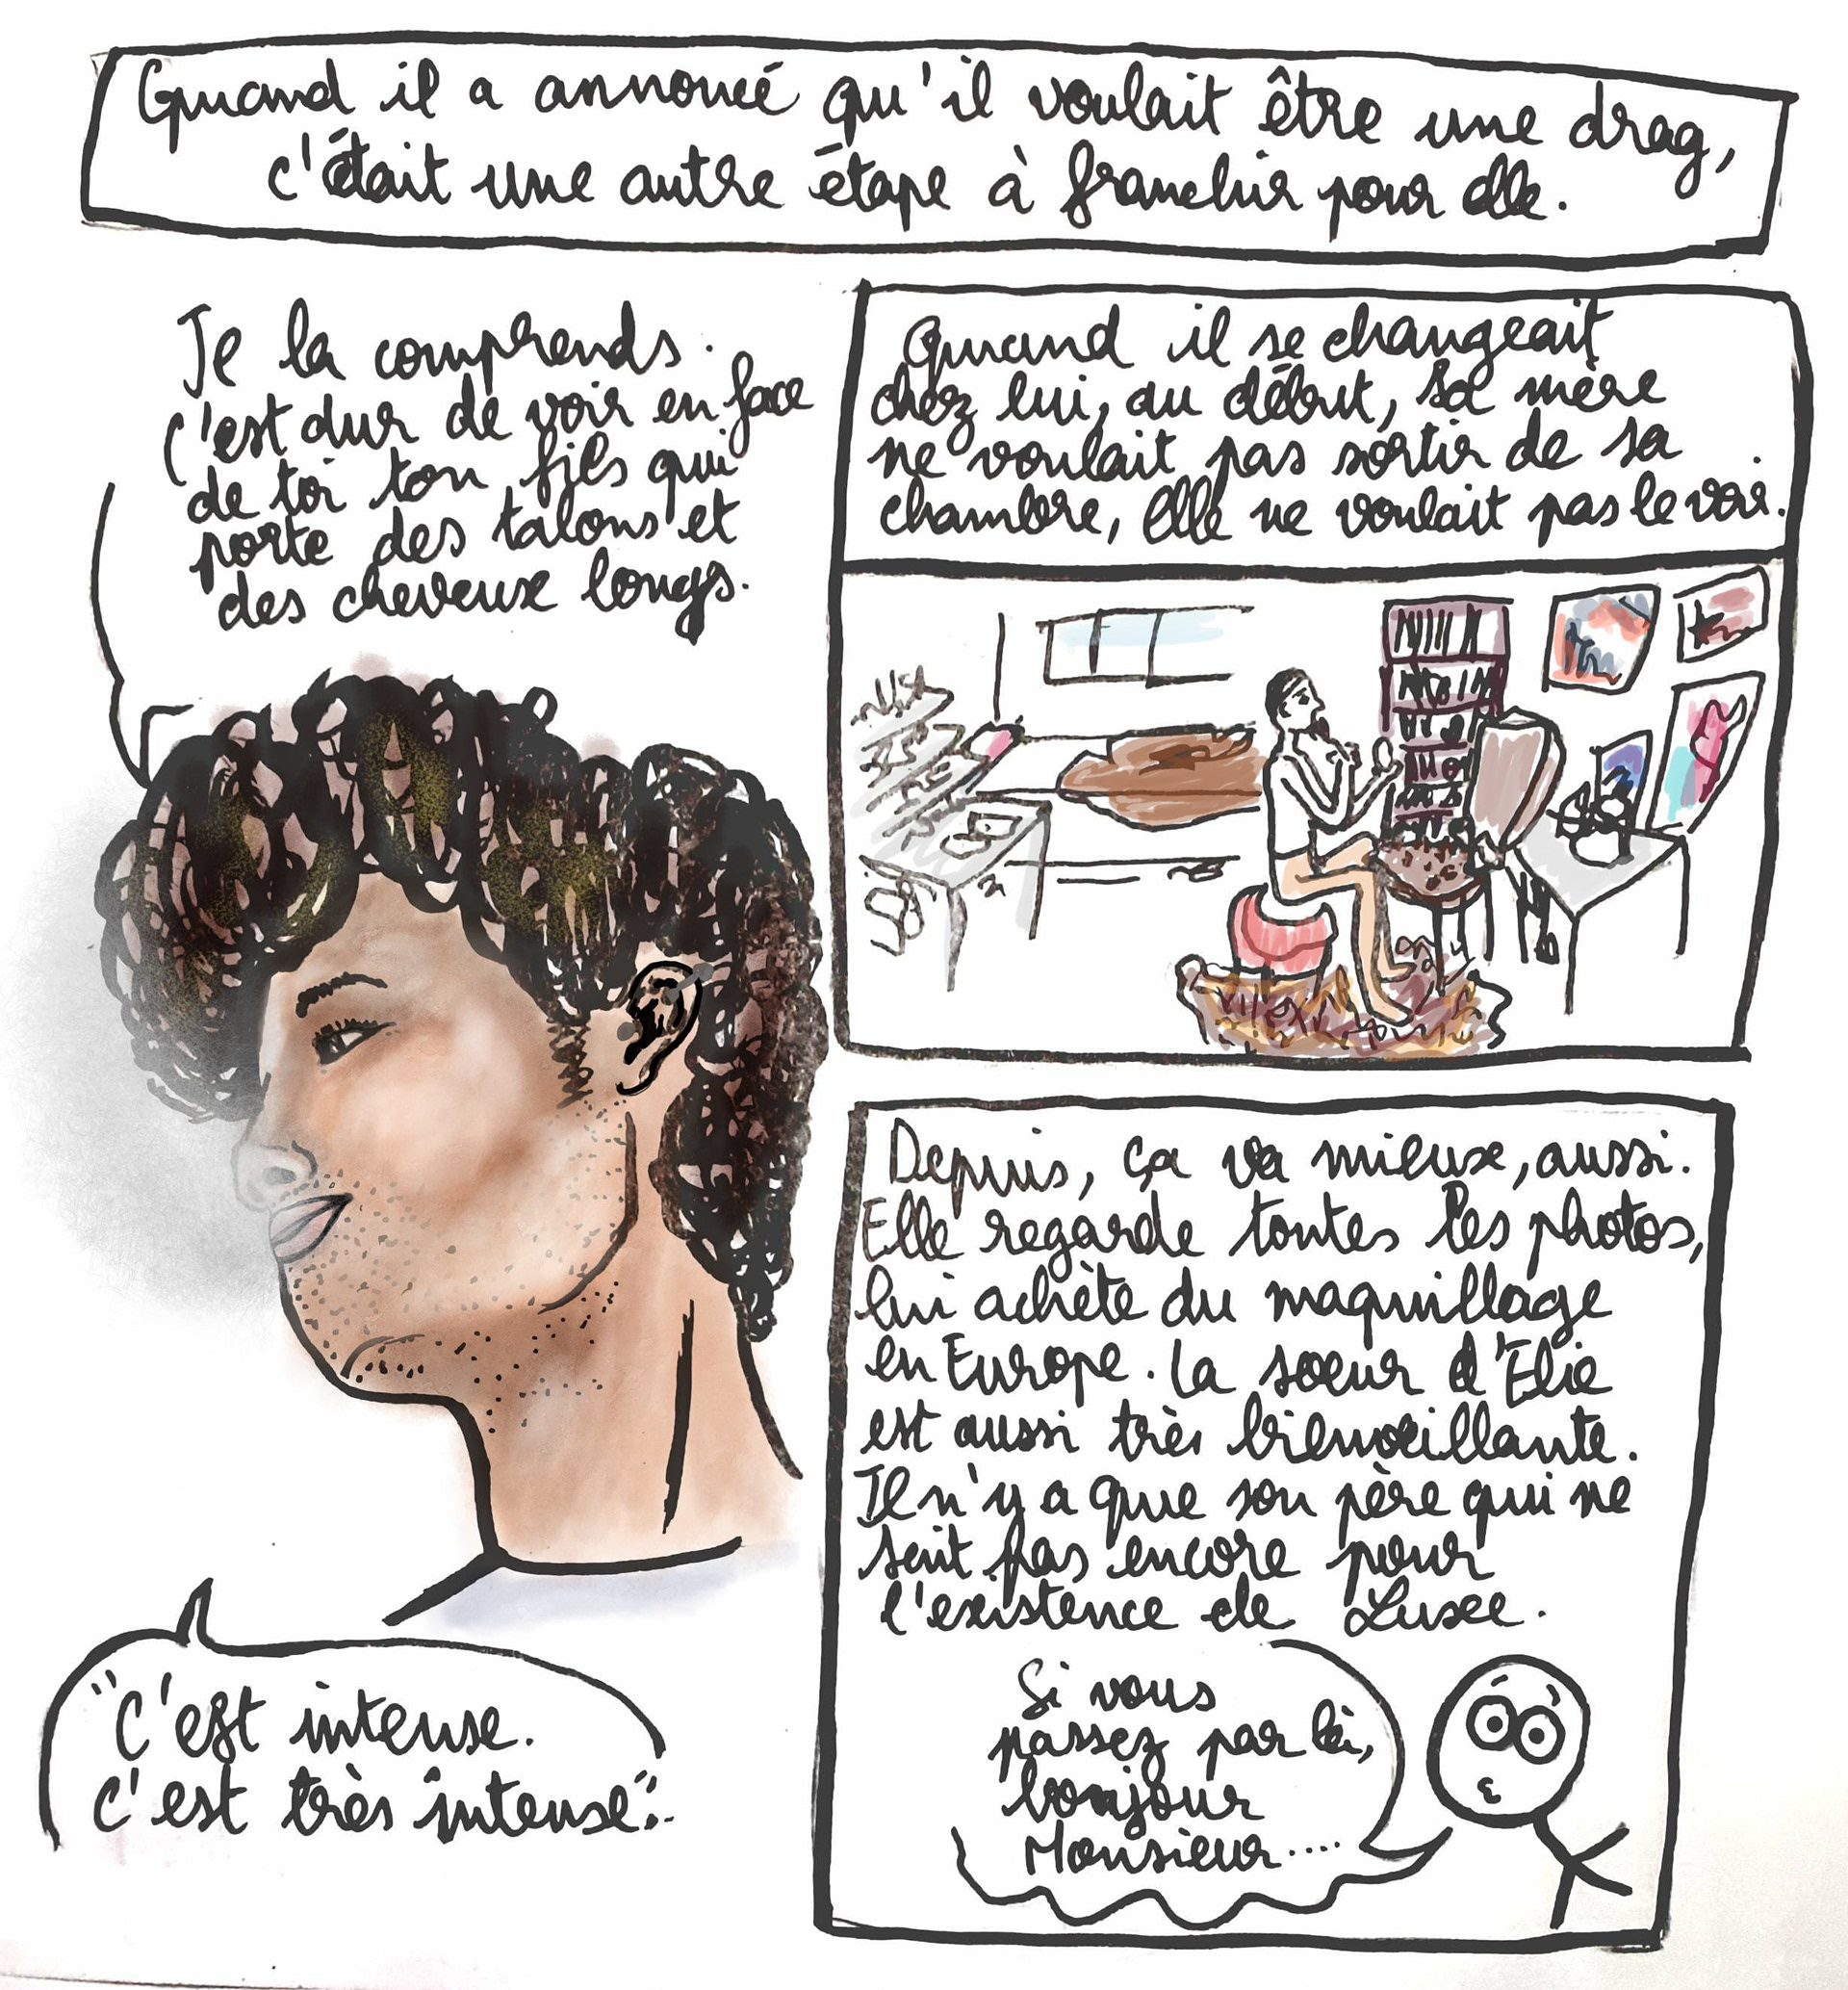 Quand il a annoncé qu'il voulait être une drag,
c'était une autre étape à franchir pour elle.
Je la comprends.
C'est dur de voir en face
de toi ton fils qui
porte des talons et
des cheveux longs.
Quand il se changeait
chez lui, au début, sa mère
ne voulait pas sortir de sa
chambre, elle ne voulait pas le voir.
"C'est intense.
C'est très intense".
Depuis, ça va mieux, aussi.
Elle regarde toutes les photos,
lui achète du maquillage
en Europe. La soeur d'Elie
est aussi très bienveillante.
Il n'y a que son père qui ne
sait pas encore pour
l'existence de Luxee.
Si vous
passez par là,
bonjour
Monsieur....